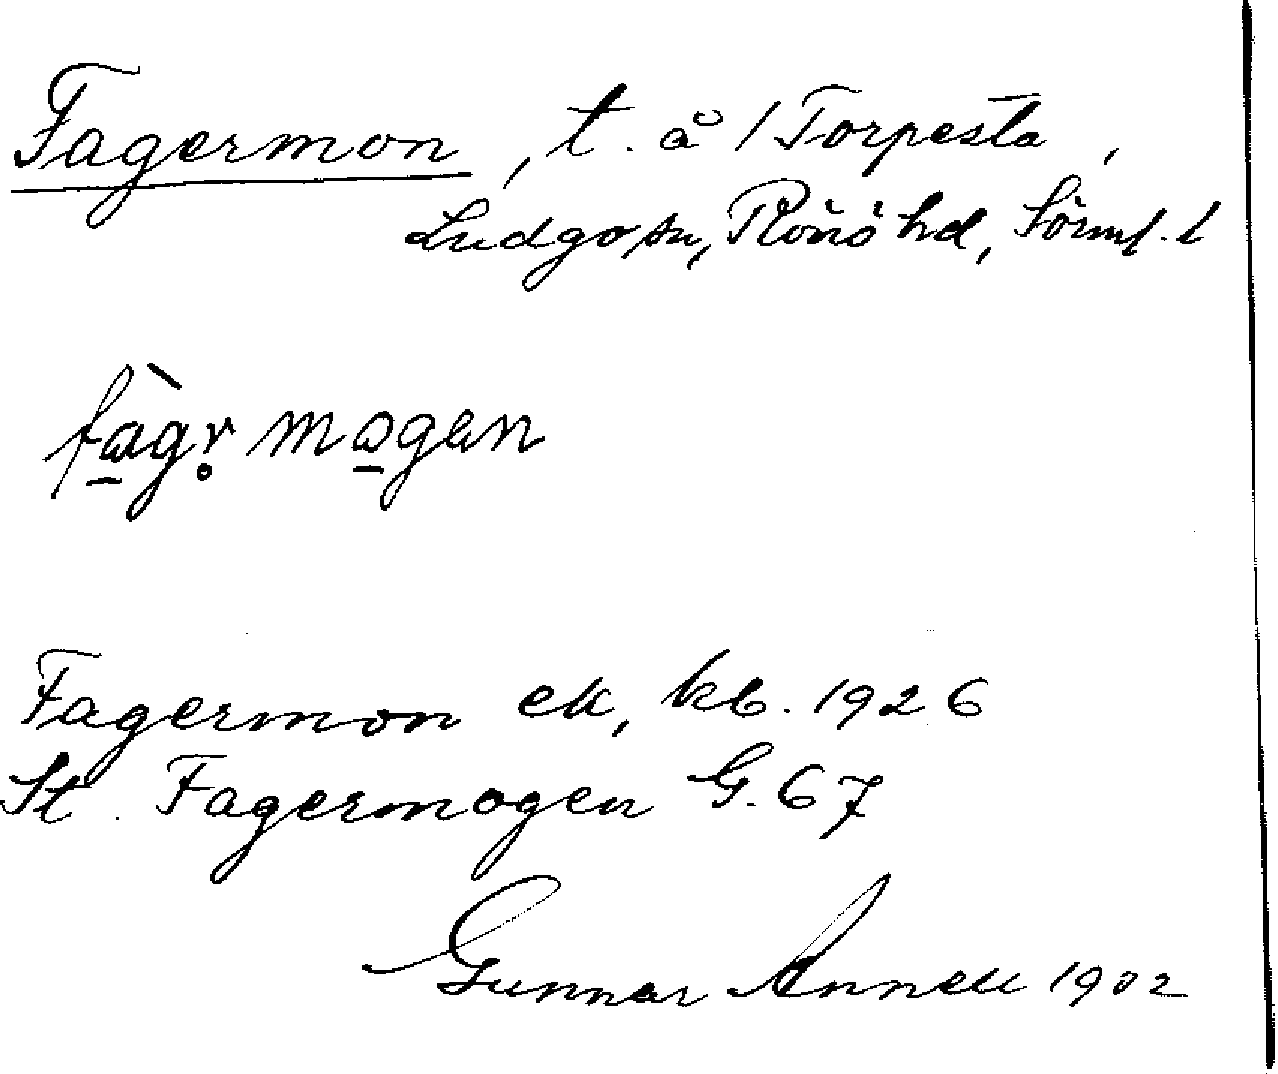 Fagermon, t. å 1 Torpesta,
Ludgo sn, Rönö hd, Sörml. l
fàgr̥ mogan
Fagermon ek, kb. 1926
St. Fagermogen G. 67
Gunnar Annell 1902